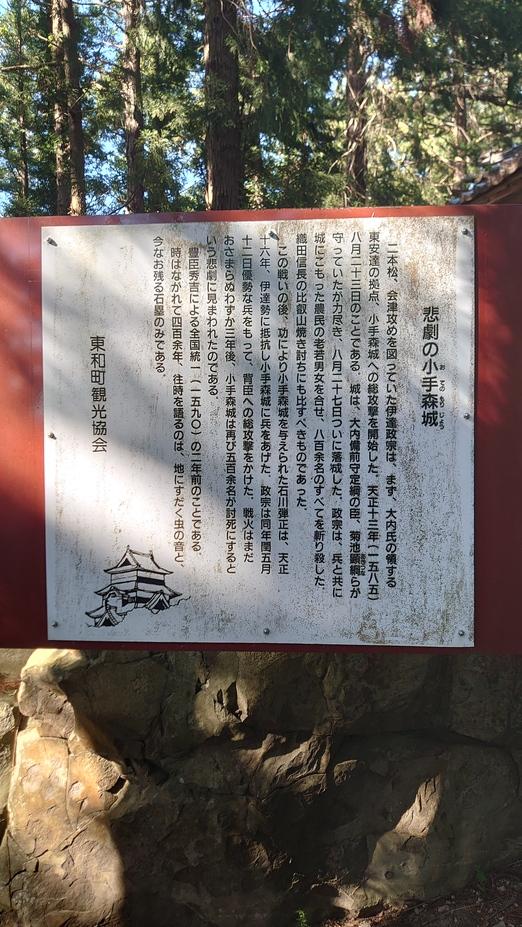 悲劇の小手森城
おてのもりじょう
二本松、会津攻めを図っていた伊達政宗は、まず、大内氏の領する
東安達の拠点、小手森城への総攻撃を開始した。天正十三年(一五八五)
八月二十三日のことである。城は、大内備前守定綱の臣、菊池顕綱らが
守っていたが力尽き、八月二十七日ついに落城した。政宗は、兵と共に
城にこもった農民の老若男女を合せ、八百余名のすべてを斬り殺した。
織田信長の比叡山焼き討ちにも比すべきものであった。
この戦いの後、功により小手森城を与えられた石川弾正は、天正
十六年、伊達勢に抵抗し小手森城に兵をあげた。政宗は同年閏五月
十二日優勢な兵をもって、背臣への総攻撃をかけた。戦火はまだ
おさまらぬわずか三年後、小手森城は再び五百余名が討死にすると
いう悲劇に見まわれたのである。
豊臣秀吉による全国統一(一五九〇)の二年前のことである。
時はながれて四百余年、往時を語るのは、地にすだく虫の音と、
今なお残る石塁のみである。
東和町観光協会